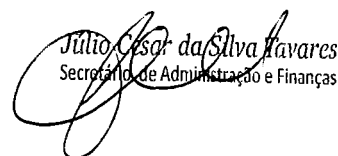 Júlio César da Silva Tavares
Secretário de Administração e Finanças